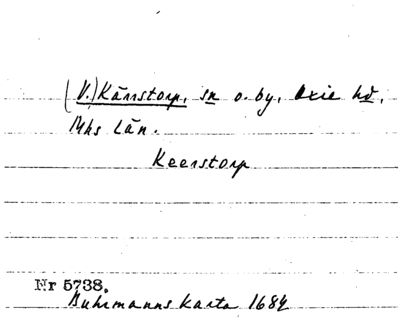 (V.) Kärrstorp, sn o. by, Oxie hd,
Mhs Län.
Keerstorp
Nr 5738.
Buhrmanns Karta 1684